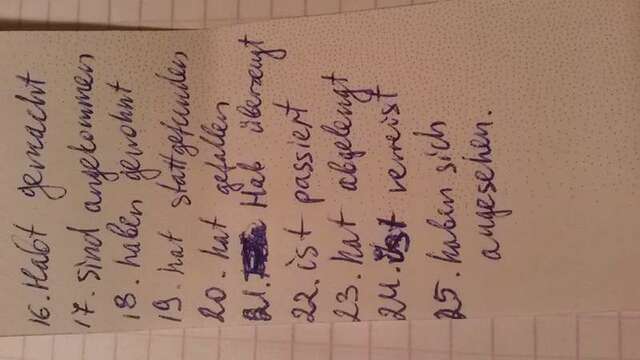 16. Habt gemacht
17. sind angekommen
18. haben gewohnt
19. hat stattgefunden
20. hat gefallen
21. Hat überzeugt
22. ist passiert
23. hat abgelengt
24. ist verreist
25. haben sich
angesehen.